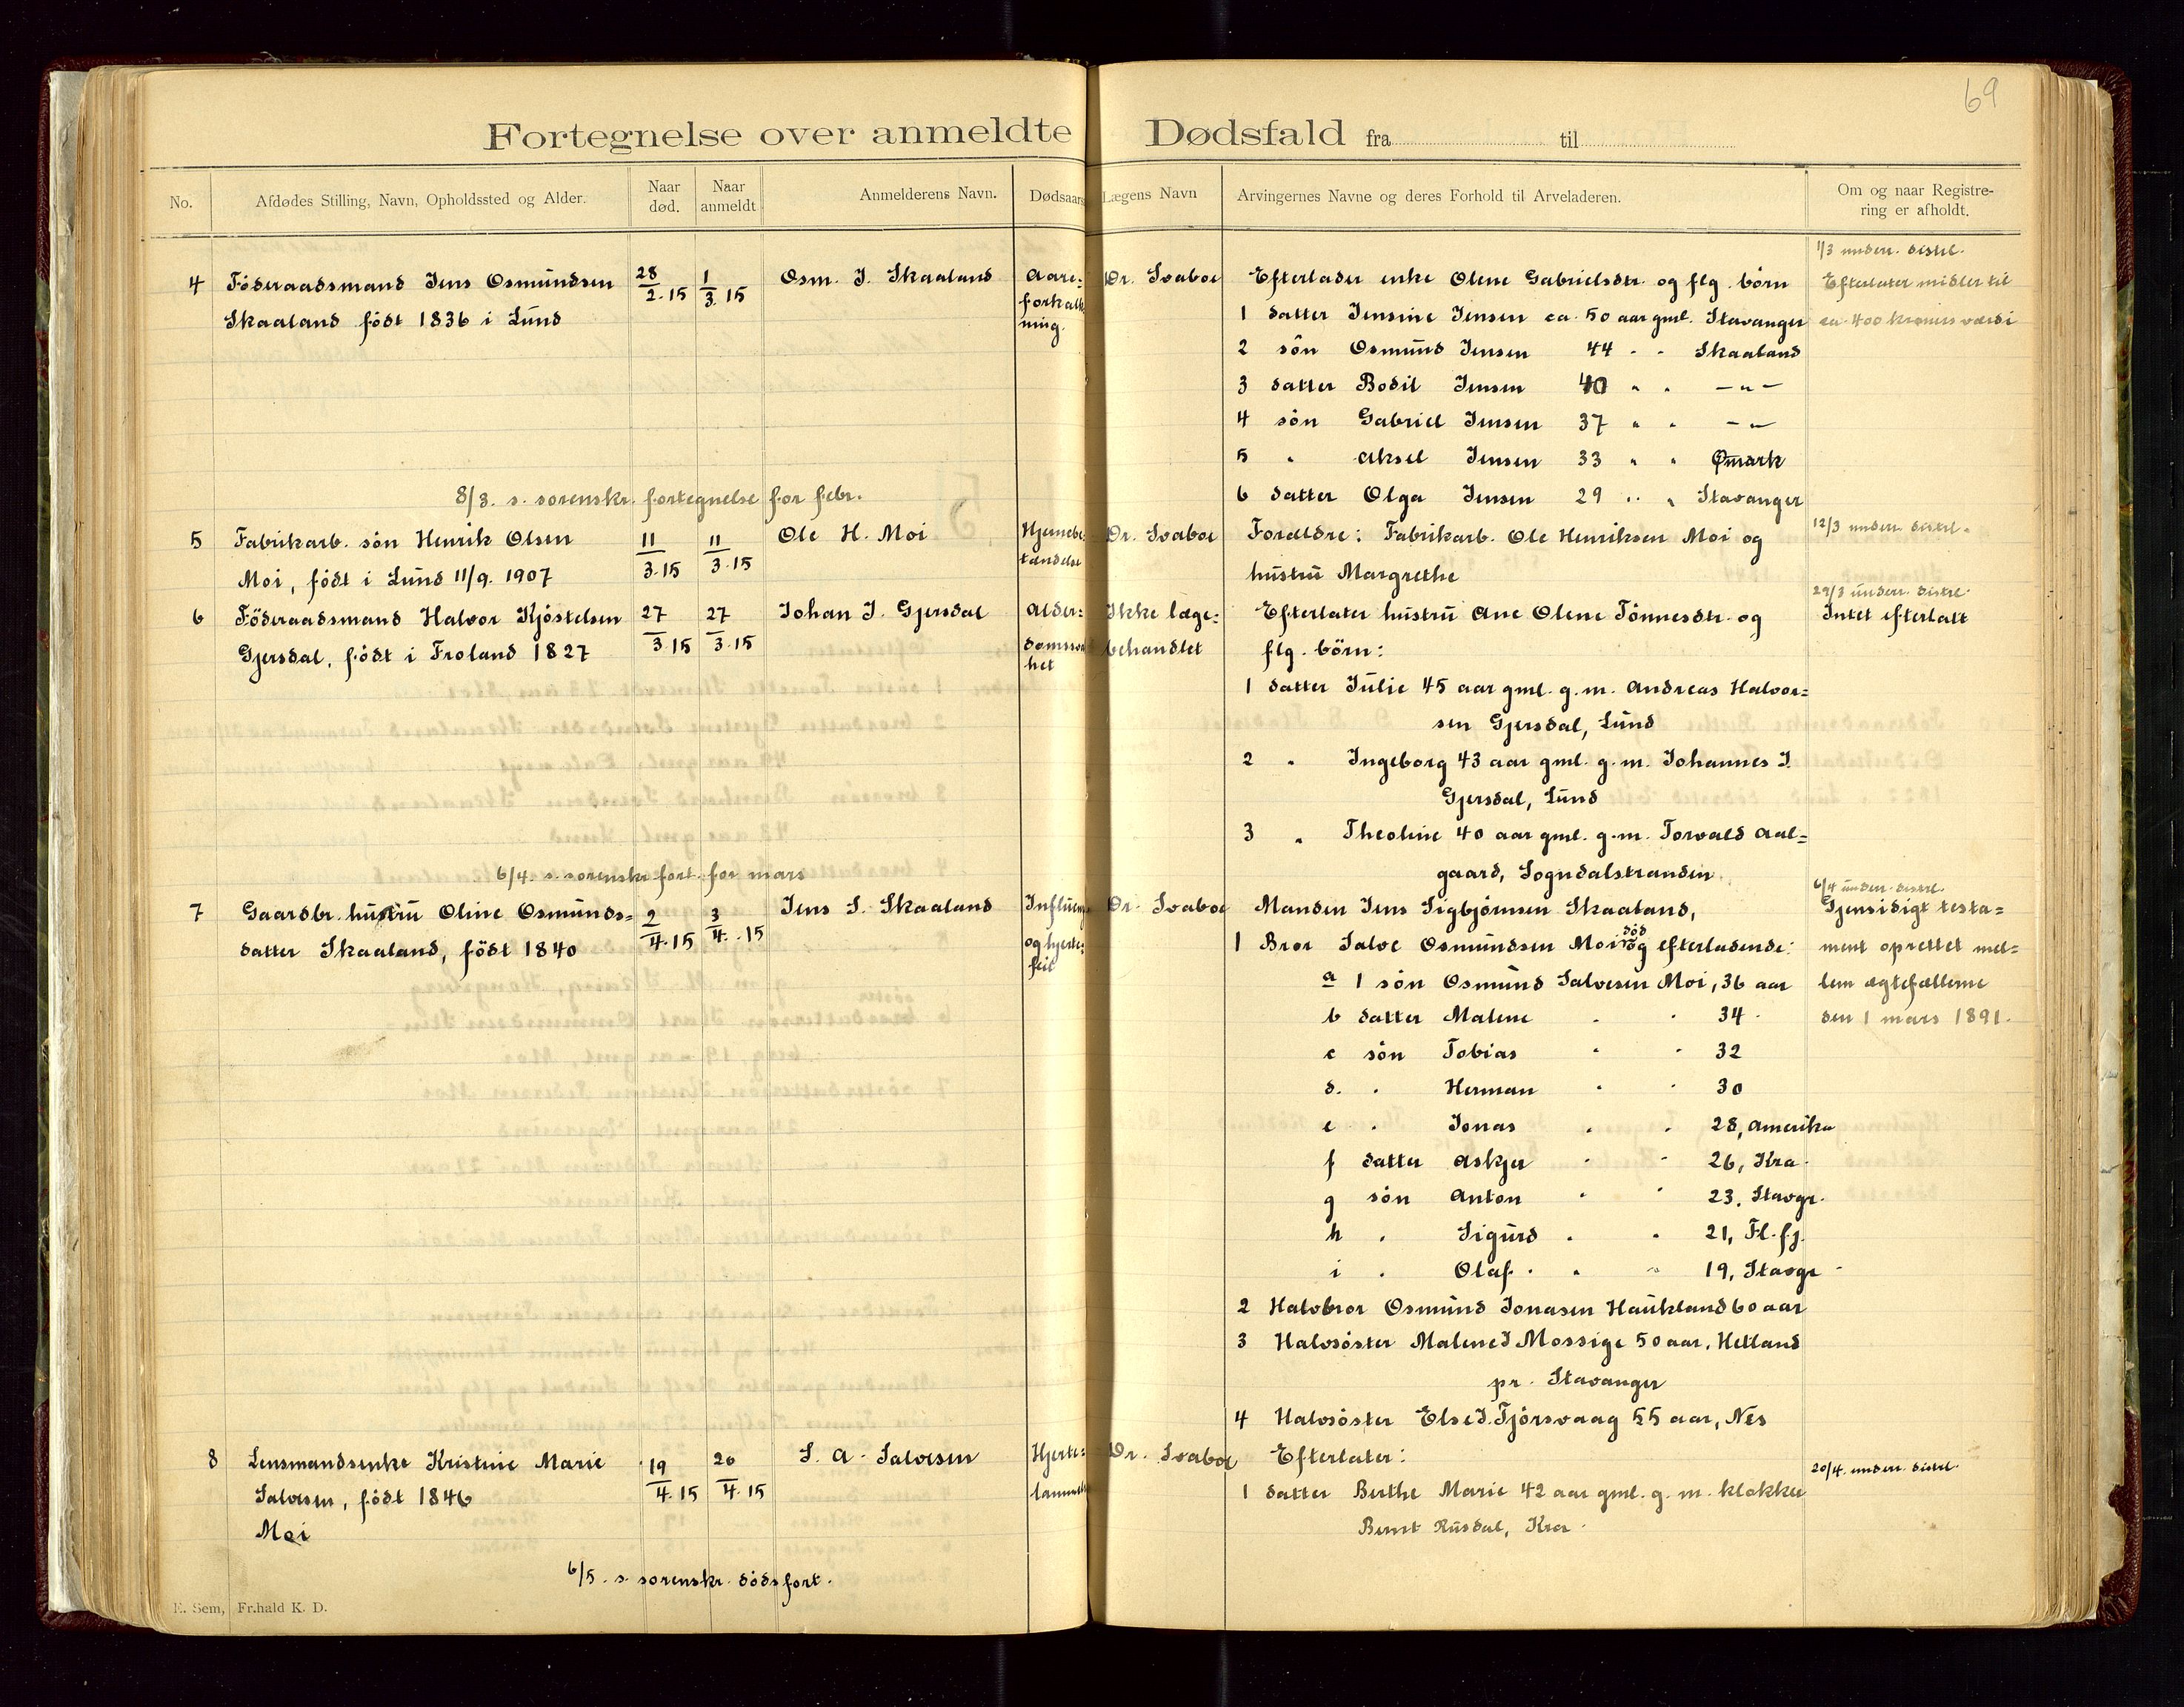 69
Fortegnelse over anmeldte Dødsfald fra til
No. Afdødes Stilling, Navn, Opholdssted og Alder. Naar død. Naar anmeldt Anmelderens Navn. Dødsaars Lægens Navn Arvingernes Navne og deres Forhold til Arveladeren. Om og naar Registrering er afholdt.
4 Föderaadsmand Jens Osmundsen 28/2.15 1/3.15 Osm. J. Skaaland Aare= Dr. Svaboe Efterlader enke Olene Gabrielsdtr. og flg. börn
Skaaland födt 1836 i Lund forkalk
ning.
1/3 underr. distel.
Efterlater midler til
ca. 400 kroners værdi
1 datter Jensine Jensen ca. 50 aar gml. Stavanger
2 sön Osmund Jensen 44 " " Skaaland
3 datter Bodil Jensen 40 " " –"–
4 sön Gabriel Jensen 37 " " –"–
5 " Aksel Jensen 33 " " Ømark
6 datter Olga Jensen 29 " " Stavanger
8/3. s. sorenskr. fortegnelse for febr.
5 Fabrikarb. sön Henrik Olsen 11/3.15 11/3.15 Ole H. Moi Hjernebe= Dr. Svaboe Forældre: Fabrikarb. Ole Henriksen Moi og 12/3 underr. distel.
Moi, födt i Lund 11/9. 1907 tændelse hustru Margrethe
6 Föderaadsmand Halvor Kjöstelsen 27/3.15 27/3.15 Johan J. Gjersdal Alder= Ikke læge= Efterlater hustru Ane Olene Tönnesdtr. og
Gjersdal, födt i Froland 1827 domssva behandlet flg. börn:
het
29/3 underr. distel.
Intet efterlatt
1 datter Julie 45 aar gml. g.m. Andreas Halvor=
sen Gjersdal, Lund
2 " Ingeborg 43 aar gml. g.m. Johannes J.
Gjersdal, Lund
3 " Theoline 40 aar gml. g.m. Torvald Aal=
gaard, Sogndalstranden
6/4. s. sorenskr. fort. for mars
7 Gaardbr. hustru Oline Osmunds= 2/4.15 3/4.15 Jens S. Skaaland Influen Dr. Svaboe Manden Jens Sigbjörnsen Skaaland,
datter Skaaland, födt 1840 og hjerte=
feil
6/4 underr. distel.
Gjensidigt testa=
ment oprettet mel=
lem ægtefællerne
den 1 mars 1891.
1 Bror Salve Osmundsen Moi död og efterladende:
a 1 sön Osmund Salvesen Moi, 36 aar
b datter Malene " " 34
c sön Tobias " " 32
d. " Herman " " 30
e " Jonas " " 28, Amerika
f datter Askjer " " 26, Kra.
g sön Anton " " 23, Stavgr.
h " Sigurd " " 21, Fl.fj.
i " Olaf " " 19, Stavgr.
2 Halvbror Osmund Jonasen Haukland 60 aar
3 Halvsöster Malene J Mossige 50 aar, Hetland
pr. Stavanger
4 Halvsöster Else J. Tjörsvaag 55 aar, Nes
8 Lensmandsenke Kristine Marie 19/4.15 20/4.15 S. A. Salvesen Hjerte= Dr. Svaboe Efterlater: 20/4. underr. distel.
Salvesen, födt 1846 lammelse 1 datter Berthe Marie 42 aar gml. g. m. klokker
Moi Bernt Rusdal, Kra.
6/5. s. sorenskr. dödsfort.
E. Sem, Fr.hald K. D.